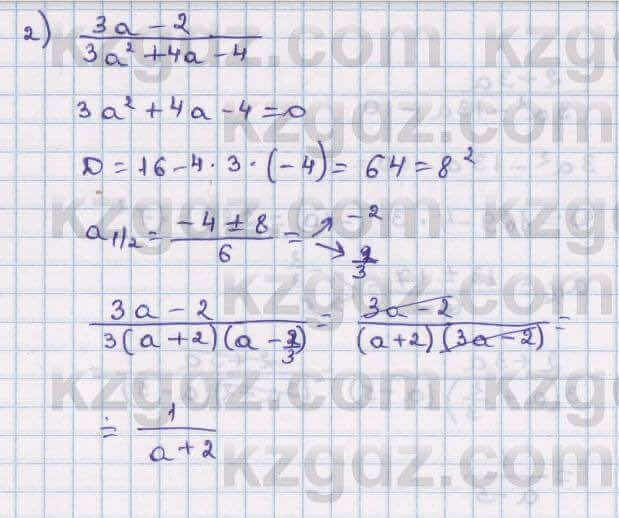 2) (3a - 2)/(3a² + 4a - 4)
3a² + 4a - 4 = 0
D = 16 - 4 · 3 · (-4) = 64 = 8²
a₁/₂ = (-4 ± 8)/6 = ↗ -2 ↘ 2/3
(3a - 2)/(3(a + 2)(a - 2/3)) = (3a - 2)/((a + 2)(3a - 2)) =
= 1/(a + 2)
kzgdz.com
kzgdz.com
kzgdz.com
kzgdz.com
kzgdz.com
kzgdz.com